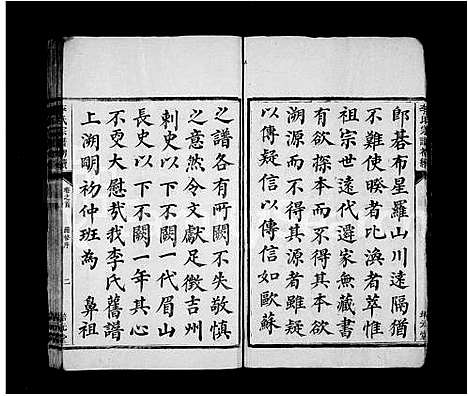 郎碁布星羅山川遠隔猶
不難使暌者比渙者萃惟
祖宗世遠代遷家無藏書
有欲
溯源而不得其源者雖疑
以傳疑信以傳信如歐蘇
之譜各有所闕不失敬慎
之意然今文獻足徵吉州
刺史以下不闕一代眉山
長史以下不闕一年其心
不更大慰哉我李氏舊譜
上溯明初仲班為 鼻祖
卷之首
二